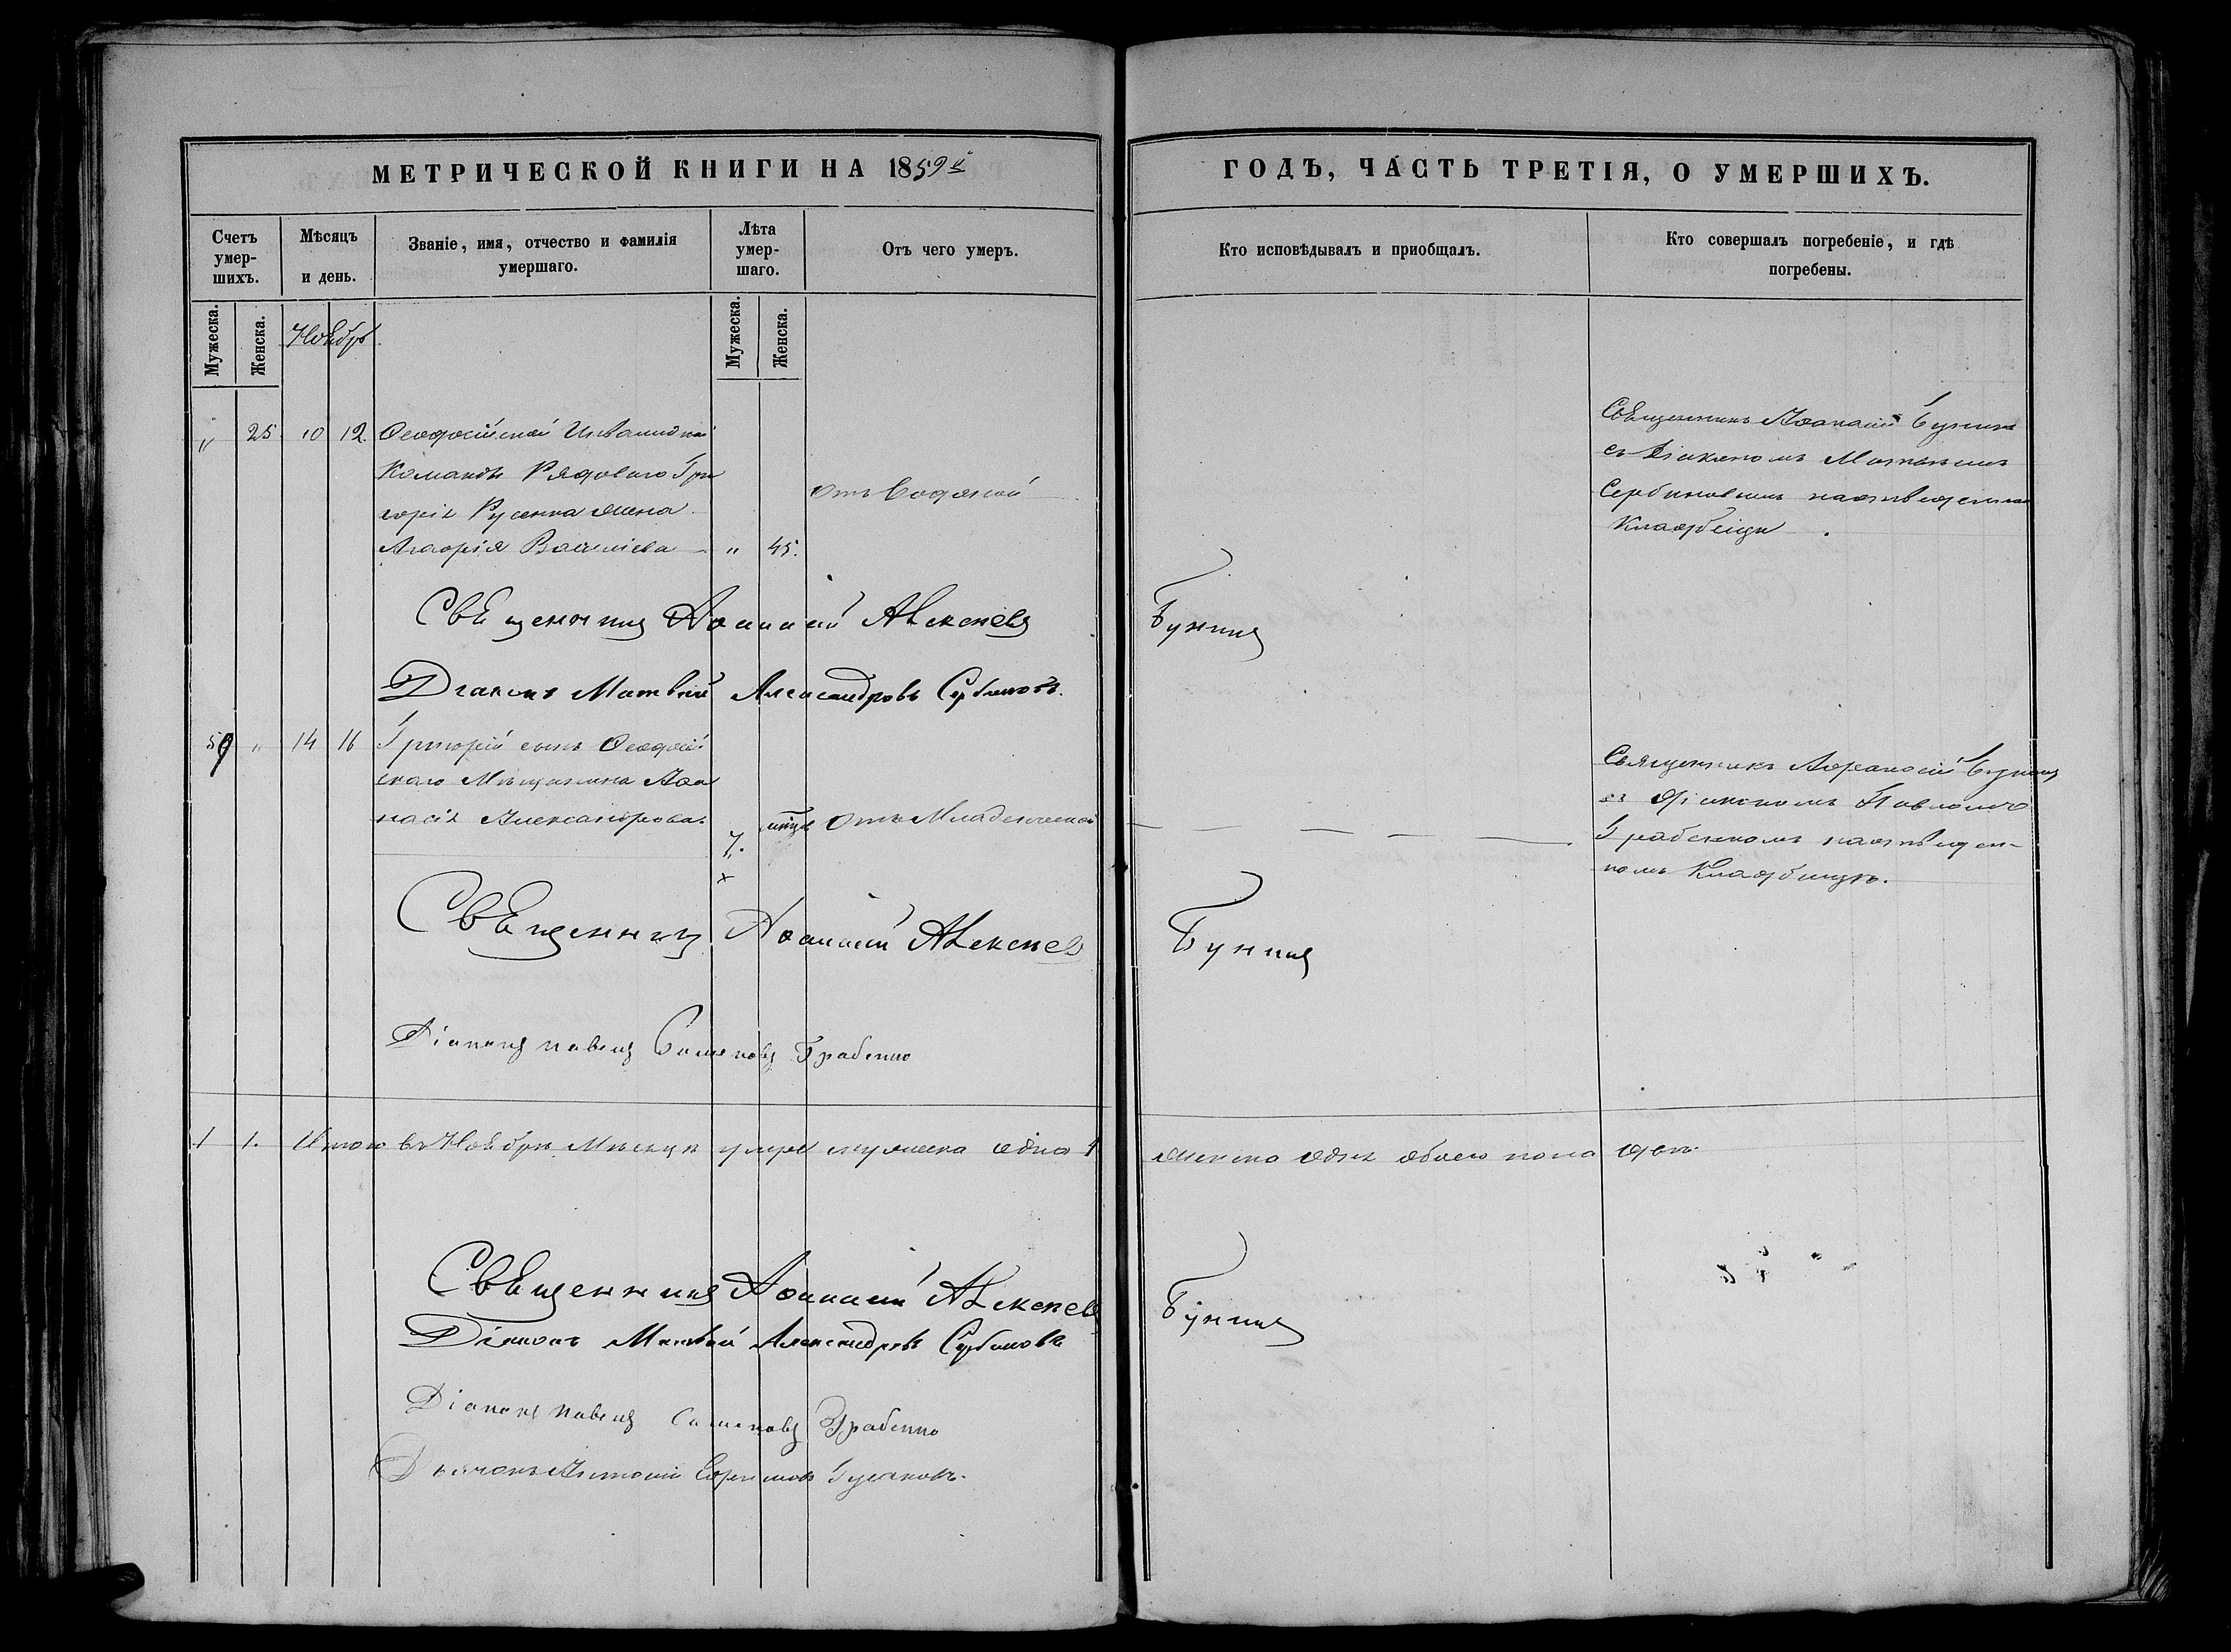 МЕТРИЧЕСКОЙ КНИГИ НА 1859й
ГОДЪ, ЧАСТЬ ТРЕТІЯ, О УМЕРШИХЪ.
Счетъ умер-шихъ.
Мѣсяцъ и день.
Званіе, имя, отчество и фамилія умершаго.
Лѣта умер-шаго.
Отъ чего умеръ.
Кто исповѣдывалъ и приобщалъ.
Кто совершалъ погребеніе, и гдѣ погребены.
Мужеска. Женска.
Ноябрь
Мужеска. Женска.
" 25 10 12 Ѳеодосійской Инвалидной
Команды Рядоваго Гри
горія Русенка жена
Васильева " 45.
отъ Водяной
Священникъ Аѳанасій Бунинъ
съ Діакономъ Матвѣемъ
Сербиновымъ на отведенномъ
Кладбищѣ.
Священникъ Аѳанасій Алексѣевъ Бунинъ
Діаконъ Матвѣй Александровъ Сербиновъ.
" 14 16 Григорій сынъ Ѳеодосій
скаго Мѣщанина Аѳа
насія Александрова.
7. мцъ Отъ Младенческой
Священникъ Аѳанасій Бунинъ
съ Діакономъ Павломъ
Грабенкомъ на отведен-
номъ Кладбищѣ.
Священникъ Аѳанасій Алексѣевъ Бунинъ
Діаконъ Павелъ Грабенко
1 1. Итого въ Ноябрѣ Мѣсяцѣ умерло мужеска одинъ 1 женска одна обоего пола двое
Священникъ Аѳанасій Алексѣевъ Бунинъ
Діаконъ Матвѣй Александровъ Сербиновъ
Діаконъ Павелъ Грабенко
Дьячокъ Антоній